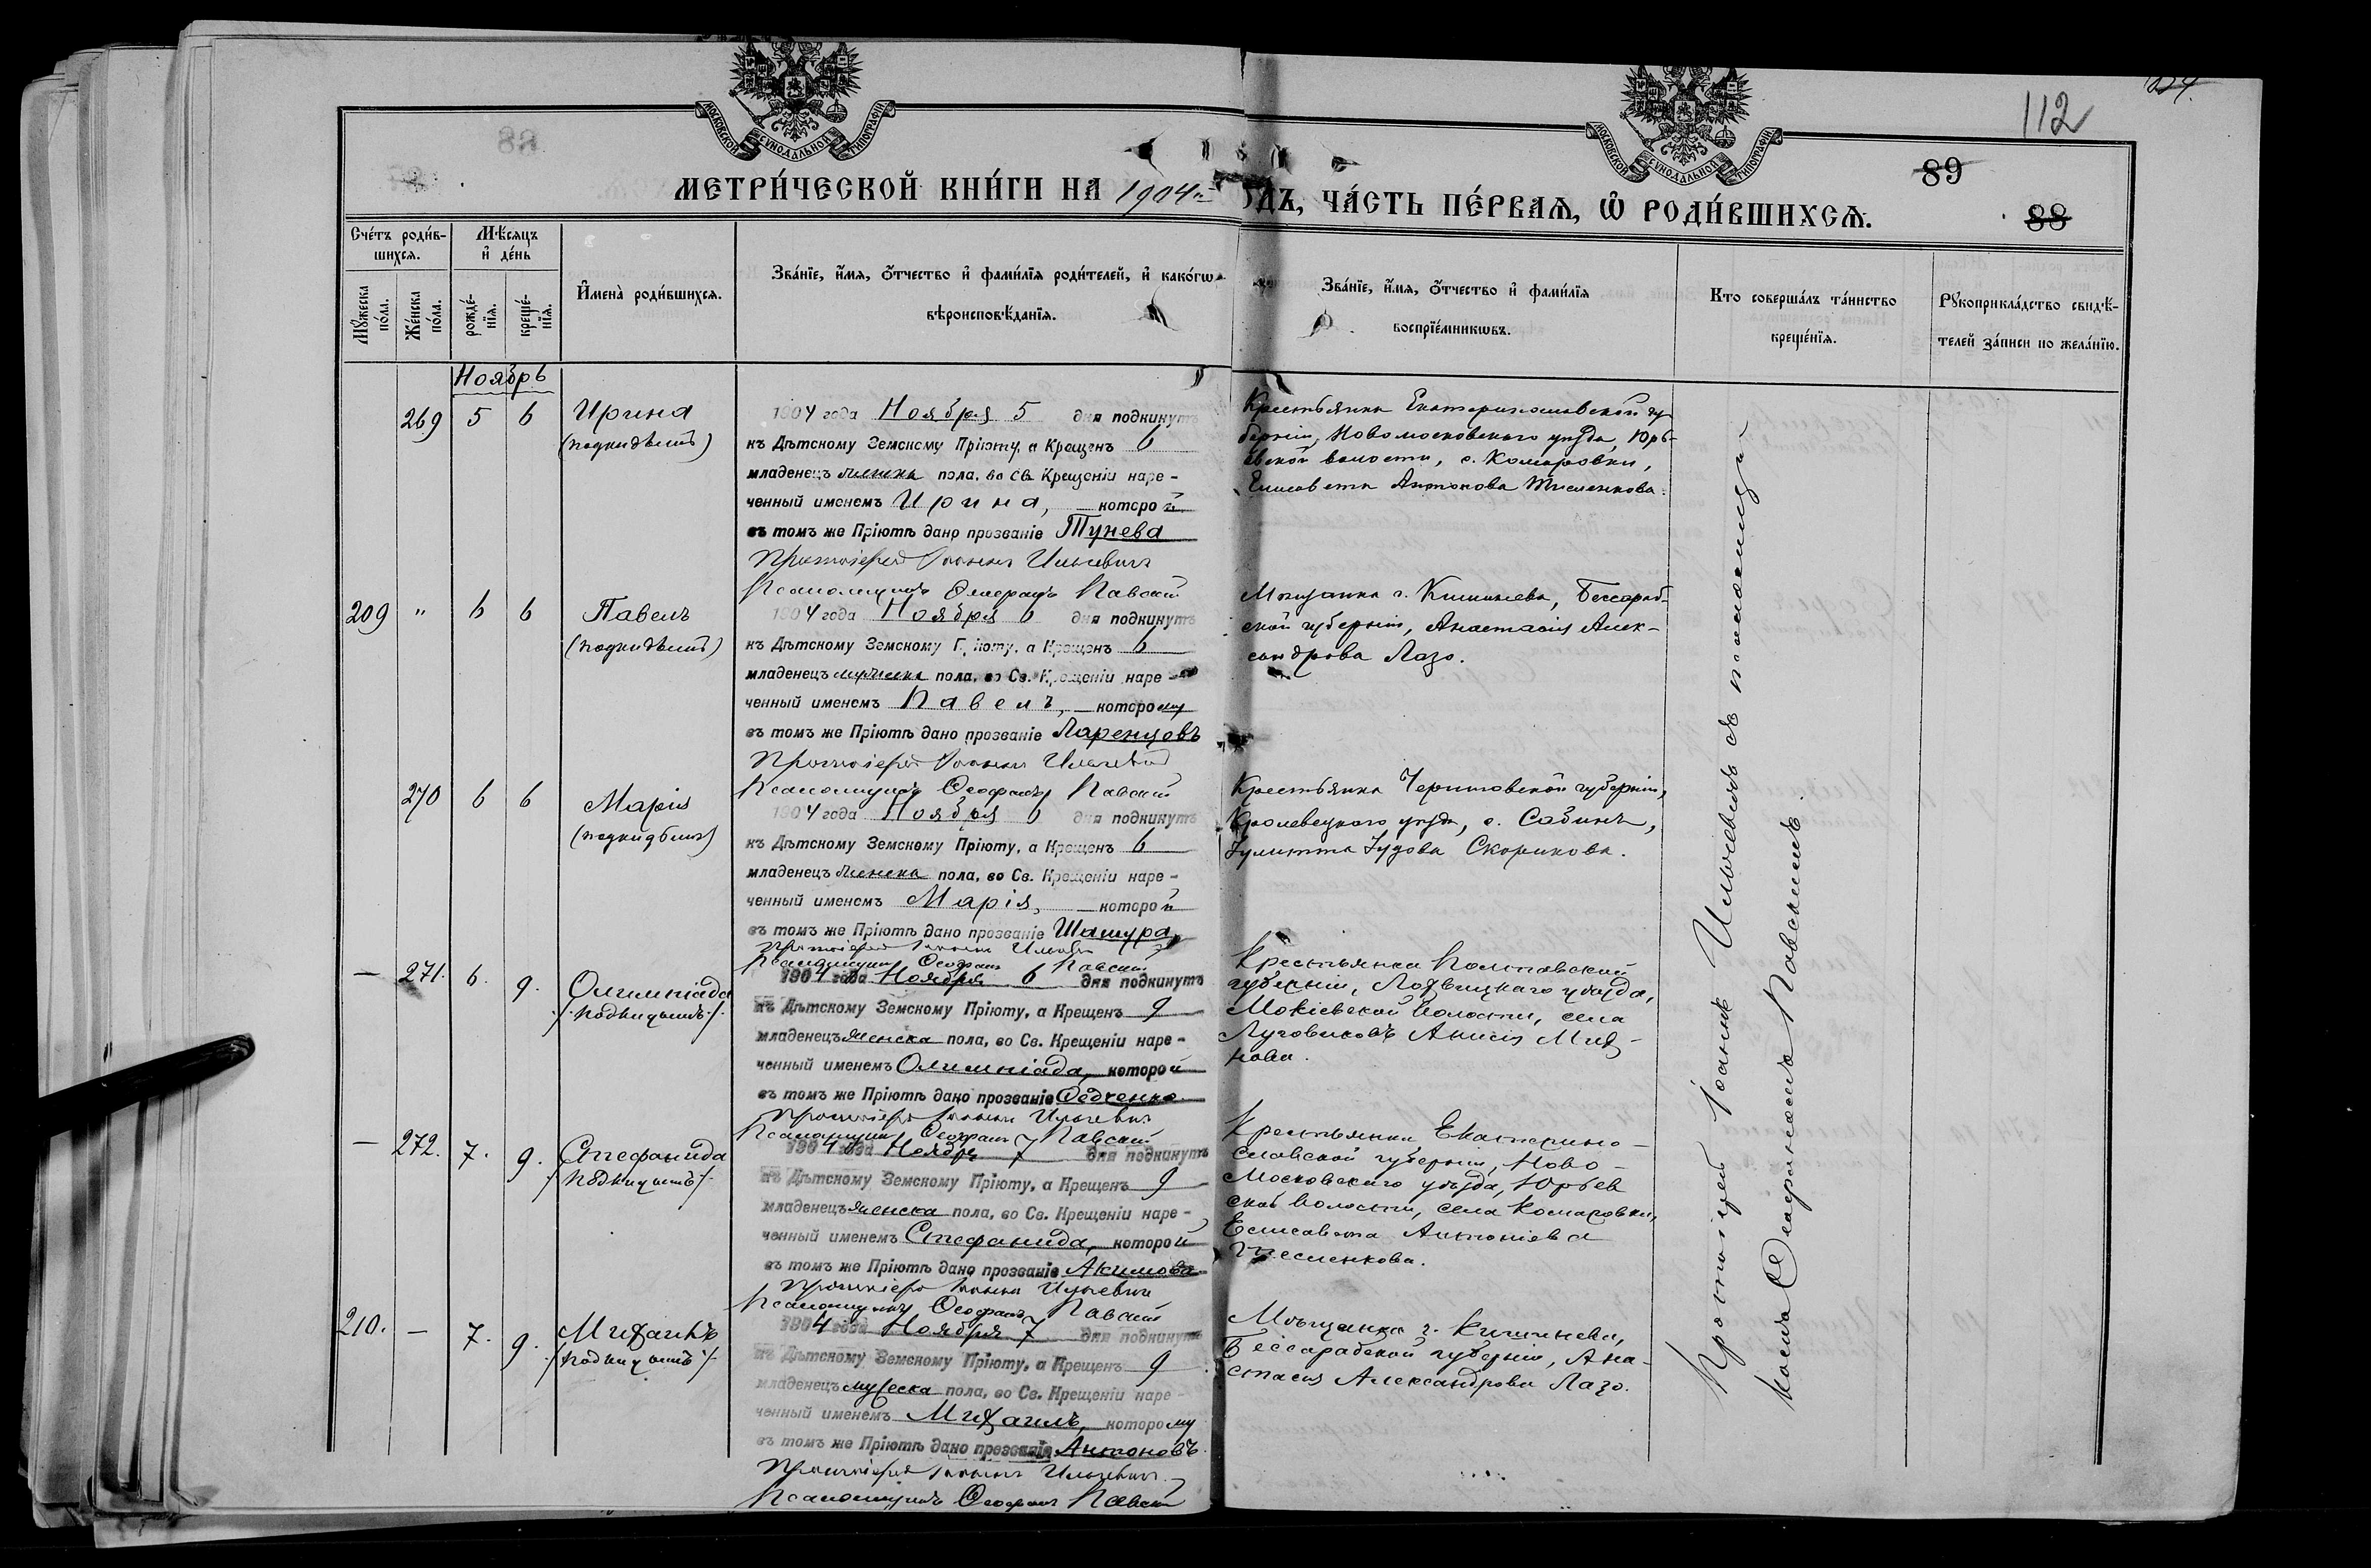 МОСКОВСКОЙ СѴНОДАЛЬНОЙ ТИПОГРАФІИ
МОСКОВСКОЙ СѴНОДАЛЬНОЙ ТИПОГРАФІИ
112
89
88
МЕТРИ́ЧЕСКОЙ КНИ́ГИ НА 1904й
ДЪ, ЧА́СТЬ ПЕ́РВАѦ, Ѽ РОДИ́ВШИХСѦ.
Сче́тъ роди́в-
шихсѧ.
Мѣ́сѧцъ
и҆ де́нь
Мꙋ́жеска
по́ла.
Же́нска
по́ла.
рожде́-
нїѧ.
креще́-
нїѧ.
И҆мена̀ роди́вшихсѧ.
Зва́нїе, и҆́мѧ, ѻ҆́тчество и҆ фами́лїѧ роди́телей, и҆ како́гѡ
вѣроисповѣ́данїѧ.
Зва́нїе, и҆́мѧ, ѻ҆́тчество и҆ фами́лїѧ
воспрїе́мникѡвъ.
Кто соверша́лъ та́инство
креще́нїѧ.
Рꙋкоприкла́дство свидѣ́-
телей за́писи по жела́нїю.
Ноябрь
269 5 6 Ирина
(подкидышъ)
1904 года Ноября 5 дня подкинутъ
къ Дѣтскому Земскому Пріюту, а Крещенъ 6
младенецъ женска пола, во Св. Крещеніи наре-
ченный именемъ Ирина, которой
въ томъ же Пріютѣ дано прозваніе Тунева
Протоіерей Іоаннъ Ильчевичъ
Псаломщикъ Ѳеофанъ Павскій
Крестьянка Екатеринославской гу
берніи, Новомосковскаго уѣзда, Юрь-
евской волости, с. Комаровки,
Елисавета Антонова
209 " 6 6 Павелъ
(подкидышъ)
1904 года Ноября 6 дня подкинутъ
къ Дѣтскому Земскому Пріюту, а Крещенъ 6
младенецъ мужеска пола, во Св. Крещеніи наре-
ченный именемъ Павелъ, которому
въ томъ же Пріютѣ дано прозваніе Ларенцовъ
Протоіерей Іоаннъ Ильчевичъ
Псаломщикъ Ѳеофанъ Павскій
Мѣщанка г. Кишинева, Бессараб-
ской губерніи, Анастасія Алек-
сандрова Лазо.
270 6 6 Марія
(подкидышъ)
1904 года Ноября 6 дня подкинутъ
къ Дѣтскому Земскому Пріюту, а Крещенъ 6
младенецъ женска пола, во Св. Крещеніи наре-
ченный именемъ Марія, которой
въ томъ же Пріютѣ дано прозваніе Шашура
Протоіерей Іоаннъ Ильчевичъ
Псаломщикъ Ѳеофанъ Павскій
Крестьянка Черниговской губерніи,
Кролевецкаго уѣзда, с. Собичъ,
Іулитта Іудова Скорикова.
— 271. 6. 9. Олимпіада
/подкидышъ/.
1904 года Ноября 6 дня подкинутъ
къ Дѣтскому Земскому Пріюту, а Крещенъ 9
младенецъ женска пола, во Св. Крещеніи наре-
ченный именемъ Олимпіада, которой
въ томъ же Пріютѣ дано прозваніе Федченко.
Протоіерей Іоаннъ Ильчевичъ
Псаломщикъ Ѳеофанъ Павскій
Крестьянка Полтавской
губерніи, Лохвицкаго уѣзда,
Мокіевской Волости, села
Луговиковъ Анисія
нова.
— 272. 7. 9. Стефанида
/подкидышъ/.
1904 года Ноября 7 дня подкинутъ
къ Дѣтскому Земскому Пріюту, а Крещенъ 9
младенецъ женска пола, во Св. Крещеніи наре-
ченный именемъ Стефанида, которой
въ томъ же Пріютѣ дано прозваніе Акимова
Протоіерей Іоаннъ Ильчевичъ
Псаломщикъ Ѳеофанъ Павскій
Крестьянка Екатерино-
славской губерніи, Ново-
Московскаго уѣзда, Юрьев
ской Волости, села Комаровки,
Елисавета Антоніева
210. — 7. 9. Михаилъ
/подкидышъ/.
1904 года Ноября 7 дня подкинутъ
къ Дѣтскому Земскому Пріюту, а Крещенъ 9
младенецъ мужеска пола, во Св. Крещеніи наре-
ченный именемъ Михаилъ, которому
въ томъ же Пріютѣ дано прозваніе Антоновъ.
Протоіерей Іоаннъ Ильчевичъ
Псаломщикъ Ѳеофанъ Павскій
Мѣщанка г. Кишинева,
Бессарабской губерніи, Ана-
стасія Александрова Лазо.
Протоіерей Іоаннъ Ильчевичъ съ псаломщи-
комъ Ѳеофаномъ Павскимъ